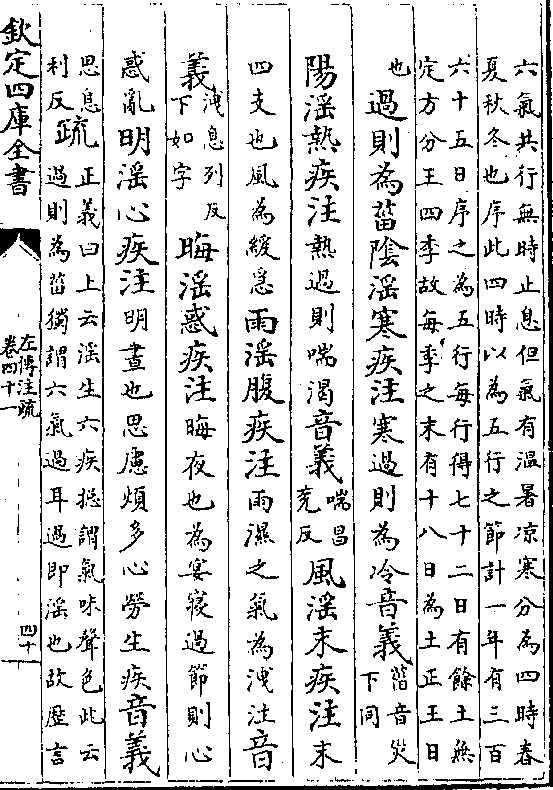 六氣共行無時止息但氣有溫暑凉寒分為四時春
夏秋冬也序此四時以為五行之節計一年有三百
六十五日序之為五行每行得七十二日有餘土無
定方分王四季故每季之末有十八日為土正王日
也過則為菑陰淫寒疾注寒過則為冷音義菑音災
下同
陽淫熱疾注熱過則喘渴音義喘昌
兖反風淫末疾注末
四支也風為緩急雨淫腹疾注雨濕之氣為洩注音
義洩息列反
下如字晦淫惑疾注晦夜也為宴寢過節則心
惑亂明淫心疾注明晝也思慮煩多心勞生疾音義
思息
利反疏正義曰上云淫生六疾揔謂氣味聲色此云
過則為菑獨謂六氣過耳過即淫也故歷言
欽定四庫全書
左傳注疏
卷四十一
四十